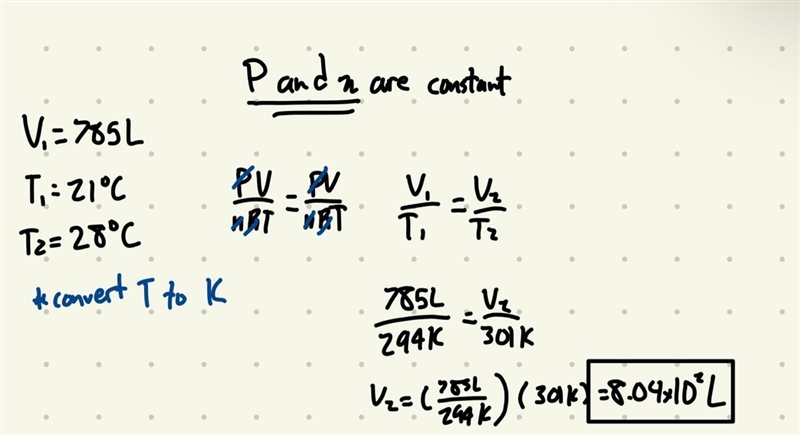 P and n are constant
V₁=785L
T₁=21°C
T₂=28°C
*convert T to K
PV/nRT = PV/nRT
V₁/T₁ = V₂/T₂
785L/294K = V₂/301K
V₂=(785L/294K)(301K)=8.04×10²L